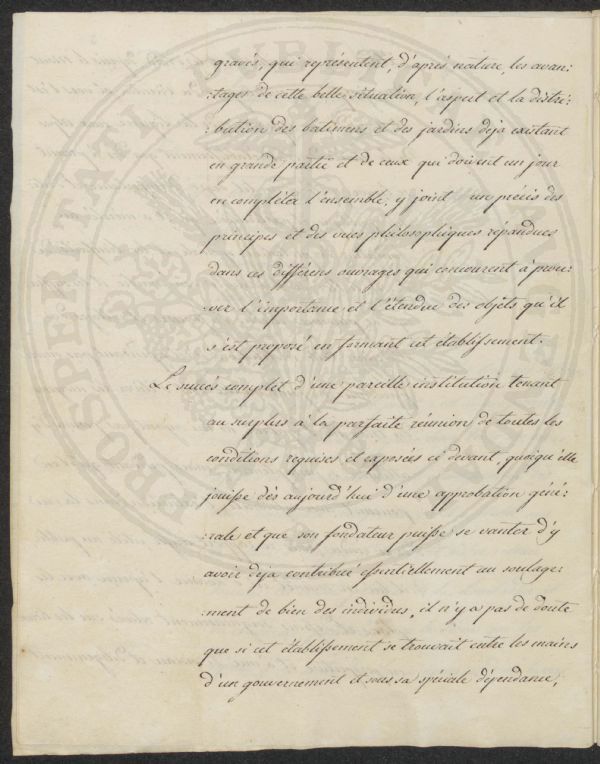 gravés, qui représentent, d'après nature, les avan:
:tages de cette belle situation, l'aspect et la distri:
:bution des batimens et des jardins deja existant
en grande partie et de ceux qui doivent un jour
en compléter l'ensemble, y joint un précis des
principes et des vues philosophiques répandues
dans ces différens ouvrages qui concourent à prou:
:ver l'importance et l'étendue des objets qu'il
s'est proposé en formant cet établissement.
Le succès complet d'une pareille institution tenant
au surplus à la parfaite réunion de toutes les
conditions requises et exposées ci devant, quoiqu'elle
jouisse dès aujourd'hui d'une approbation géné:
:rale et que son fondateur puisse se vanter d'y
avoir deja contribué essentiellement au soulage:
:ment de bien des individus, il n'y a pas de doute
que si cet établissement se trouvait entre les mains
d'un gouvernement et sous sa spéciale dépendance,
PROSPERITATI PUBL